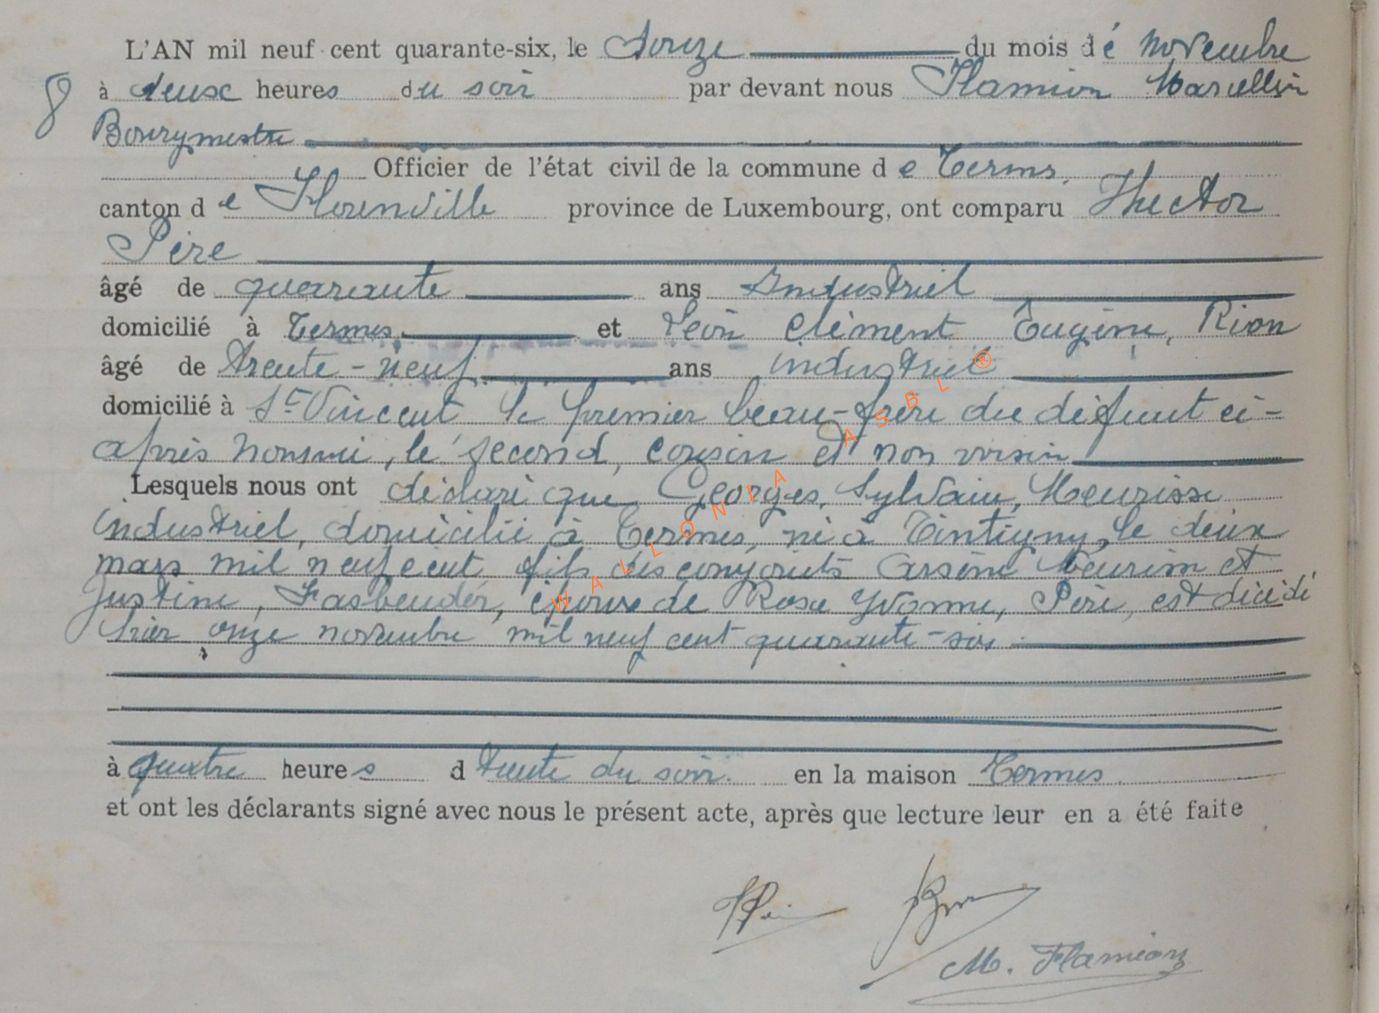 L'AN mil neuf cent quarante-six, le douze du mois de novembre
8 à deux heures du soir par devant nous Flamion Marcellin
Bourgmestre
Officier de l'état civil de la commune de Termes,
canton de Florenville province de Luxembourg, ont comparu Hector
Père
âgé de quarante ans Industriel
domicilié à Termes, et Léon Clément Eugène, Rion
âgé de trente-neuf ans industriel
domicilié à St Vincent le premier beau-frère du défunt ci-
après nommé, le second, cousin et non voisin
Lesquels nous ont déclaré que Georges, Sylvain, Meurisse
industriel, domicilié à Termes, né à Tintigny, le deux
mars mil neuf cent fils des conjoints Arsène Meurisse et
Justine, Fasbender, époux de Rosa Yvonne, Père, est décédé
hier onze novembre mil neuf cent quarante-six
à quatre heures d trente du soir. en la maison Termes
et ont les déclarants signé avec nous le présent acte, après que lecture leur en a été faite
M. Flamion
WALLONIA ASBL ®